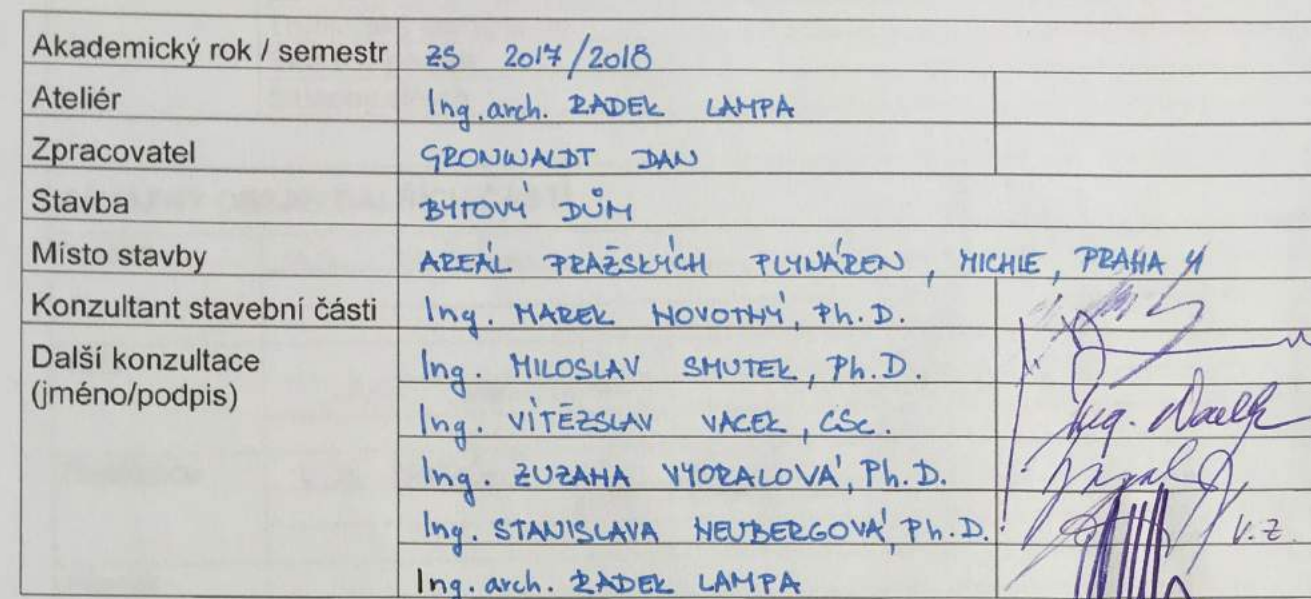 Akademický rok / semestr ZS 2017/2018
Ateliér Ing. arch. RADEK LAMPA
Zpracovatel GRONWALDT DAN
Stavba BYTOVÝ DŮM
Místo stavby AREÁL PRAŽSKÝCH PLYNÁREN, MICHLE, PRAHA 4
Konzultant stavební části Ing. MAREK NOVOTNÝ, Ph.D.
Další konzultace Ing. MILOSLAV SMUTEK, Ph.D.
(jméno/podpis)
Ing. VÍTĚZSLAV VACEK, CSc.
Ing. ZUZANA VYORALOVÁ, Ph.D.
Ing. STANISLAVA NEUBERGOVÁ, Ph.D. V.Z.
Ing. arch. RADEK LAMPA